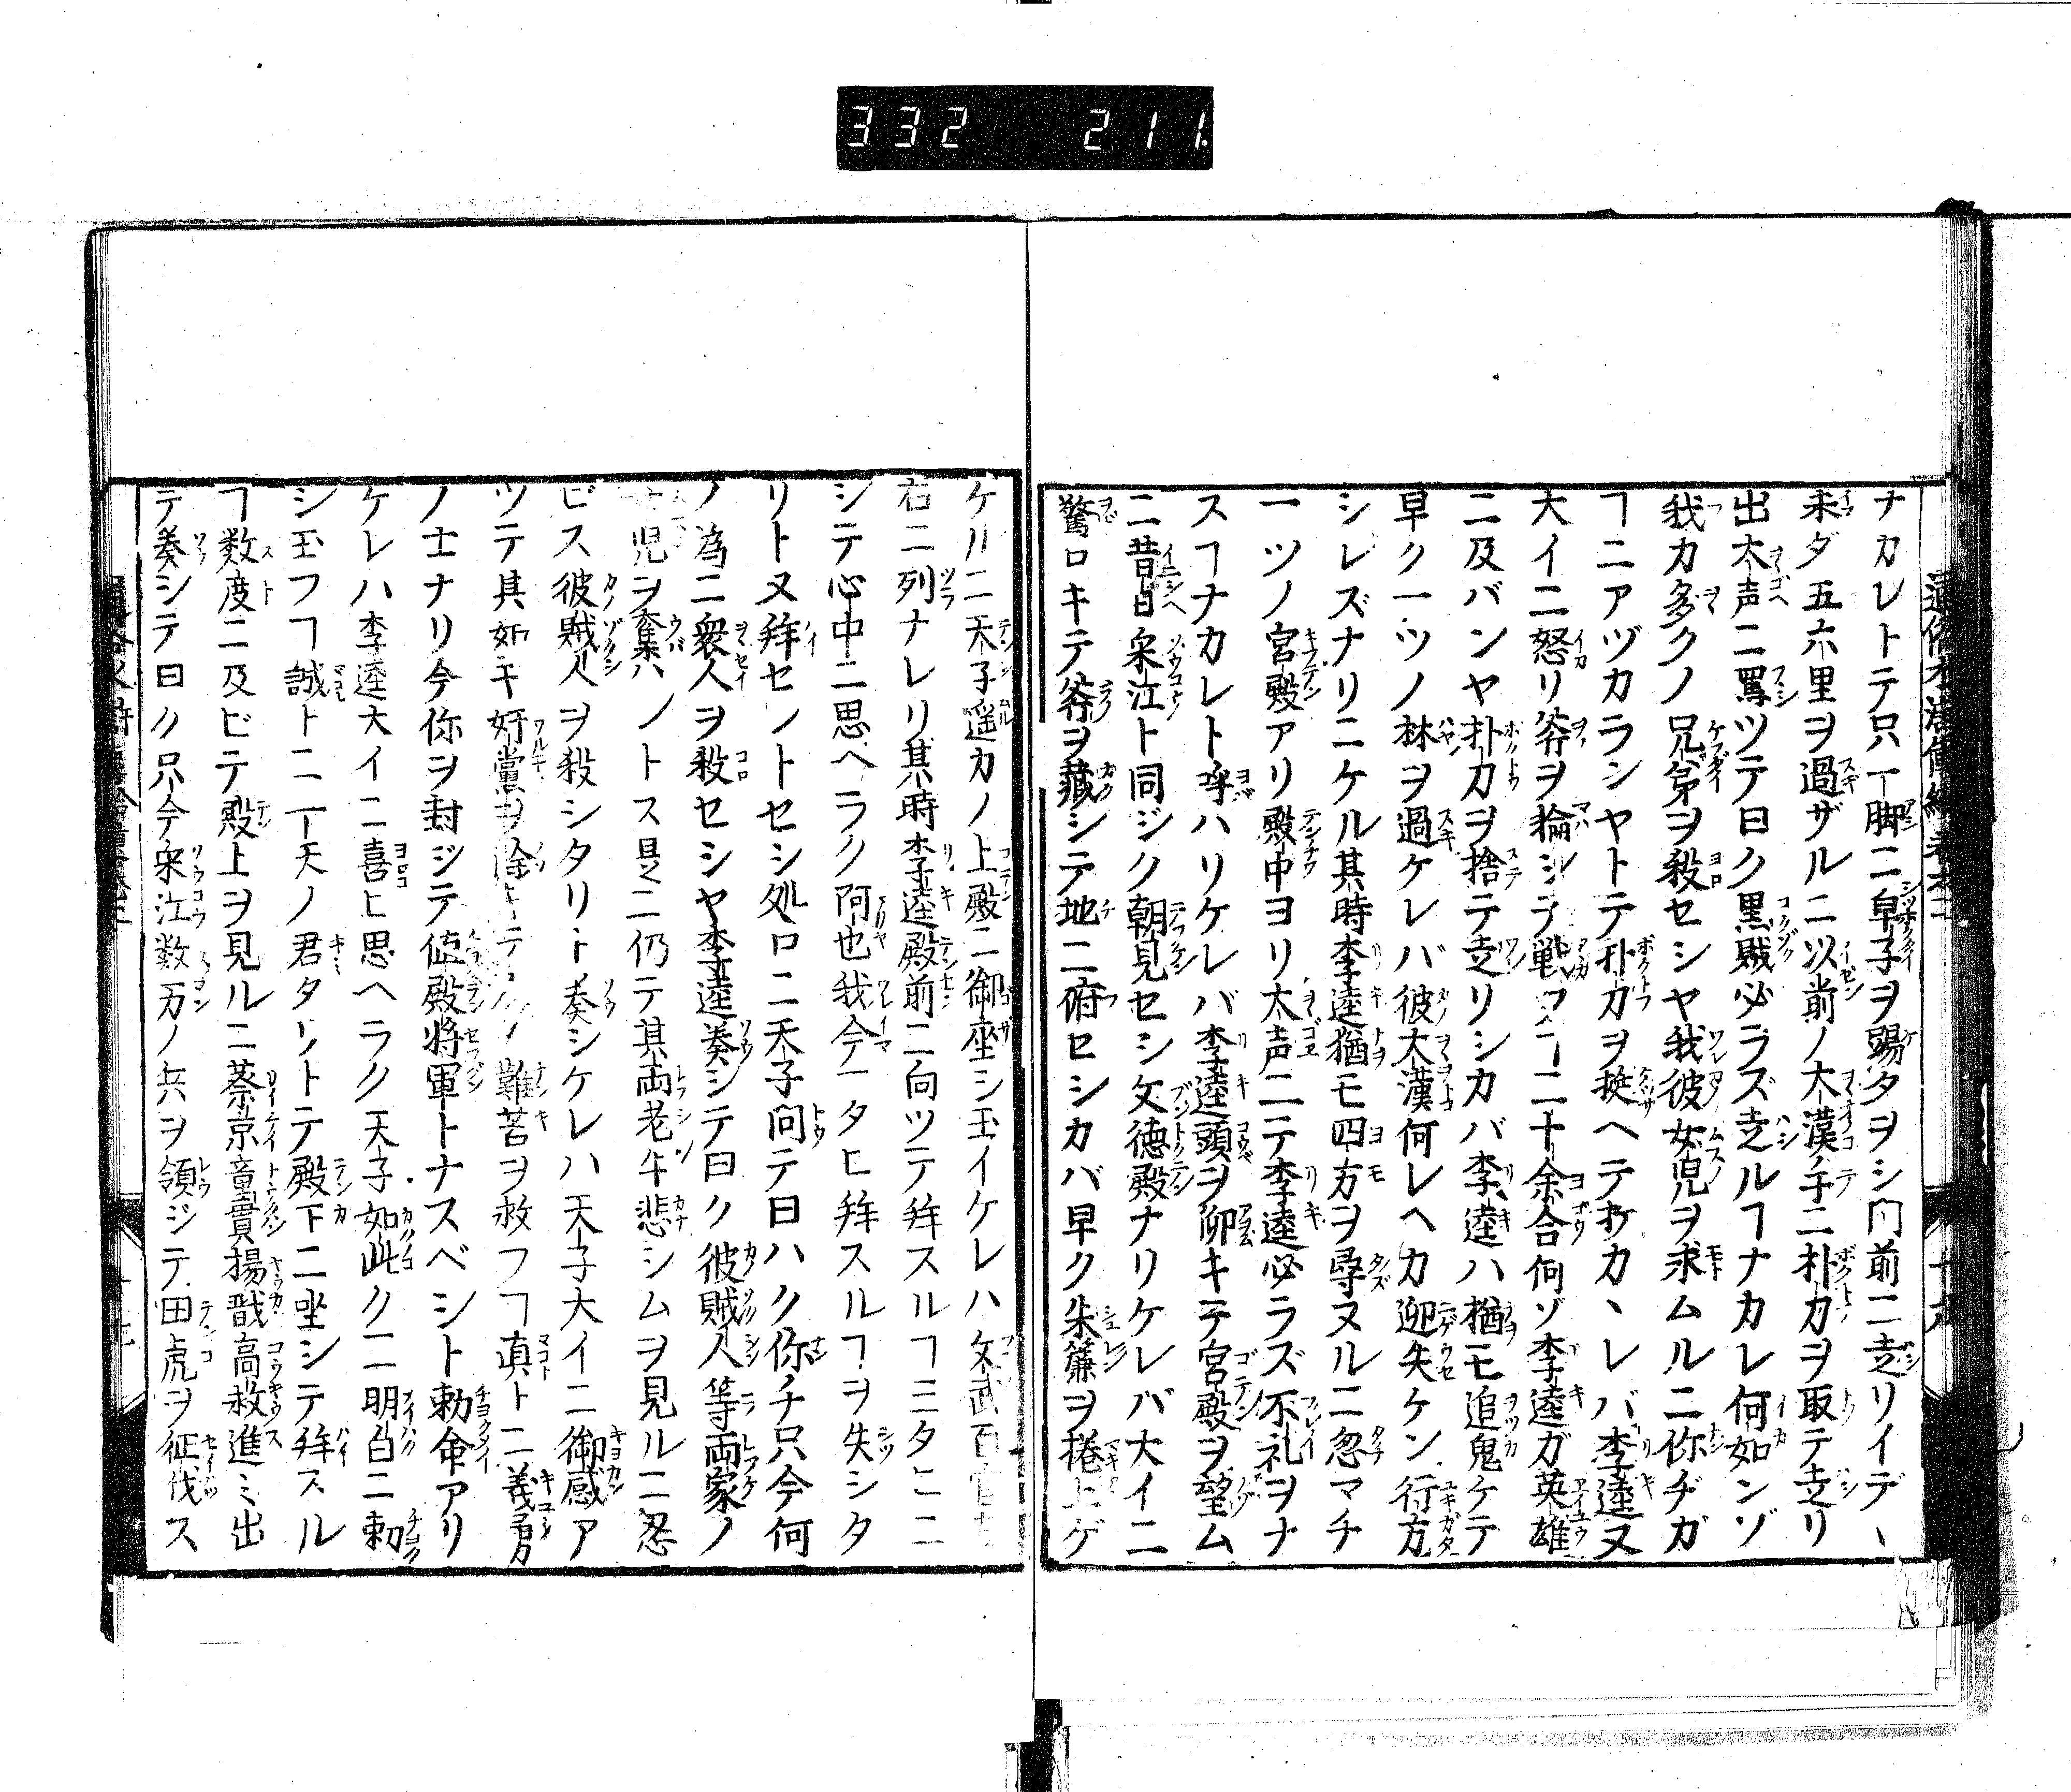 332 211.
ナカレトテ只一脚ニ卓子ヲ踢タヲシ門前ニ走リイデヽ
未ダ五六里ヲ過ザルニ以前ノ大漢手ニ朴刀ヲ取テ走リ
出大声ニ罵ツテ曰ク黒賊必ラズ走ルヿナカレ何如ンゾ
我カ多クノ兄弟ヲ殺セシヤ我彼女児ヲ求ムルニ你ヂガ
ヿニアヅカランヤトテ朴刀ヲ挺ヘテカヽレバ李逵又
大イニ怒リ斧ヲ輪シテ戦フヿ二十余合何ゾ李逵ガ英雄
ニ及バンヤ朴刀ヲ捨テ走リシカバ李逵ハ猶モ追鬼ケテ
早ク一ツノ林ヲ過ケレバ彼大漢何レヘカ迯失ケン行方
シレズナリニケル其時李逵猶モ四方ヲ尋ヌルニ忽マチ
一ツノ宮殿アリ殿中ヨリ大声ニテ李逵必ラズ不礼ヲナ
スヿナカレト呼ハリケレバ李逵頭ヲ仰キテ宮殿ヲ望ム
ニ昔日宋江ト同ジク朝見セシ文徳殿ナリケレバ大イニ
驚ロキテ斧ヲ蔵シテ地ニ俯セシカバ早ク朱簾ヲ捲上ゲ
ケルニ天子遥カノ上殿ニ御座シ玉イケレハ文武百官
右ニ列ナレリ其時李逵殿前ニ向ツテ拜スルヿ三タヒニ
シテ心中ニ思ヘラク阿也我今一タヒ拜スルヿヲ失シタ
リト又拜セントセシ処ロニ天子問テ曰ハク你チ只今何
ノ為ニ衆人ヲ殺セシヤ李逵奏シテ曰ク彼賊人等両家ノ
児ヲ奪ハントス是ニ仍テ其両老牛悲シムヲ見ルニ忍
ビス彼賊人ヲ殺シタリト奏シケレハ天子大イニ御感ア
ツテ其如キ奸黨ヲ除キテ難苦ヲ救フヿ真トニ義勇
ノ士ナリ今你ヲ封ジテ値殿将軍トナスベシト勅命アリ
ケレハ李逵大イニ喜ヒ思ヘラク天子如此クニ明白ニ勅
シ玉フヿ誠トニ一天ノ君タリトテ殿下ニ坐シテ拜スル
ヿ数度ニ及ビテ殿上ヲ見ルニ蔡京童貫揚戩高救進ミ出
テ奏シテ曰ク只今宋江数万ノ兵ヲ領ジテ田虎ヲ征伐ス